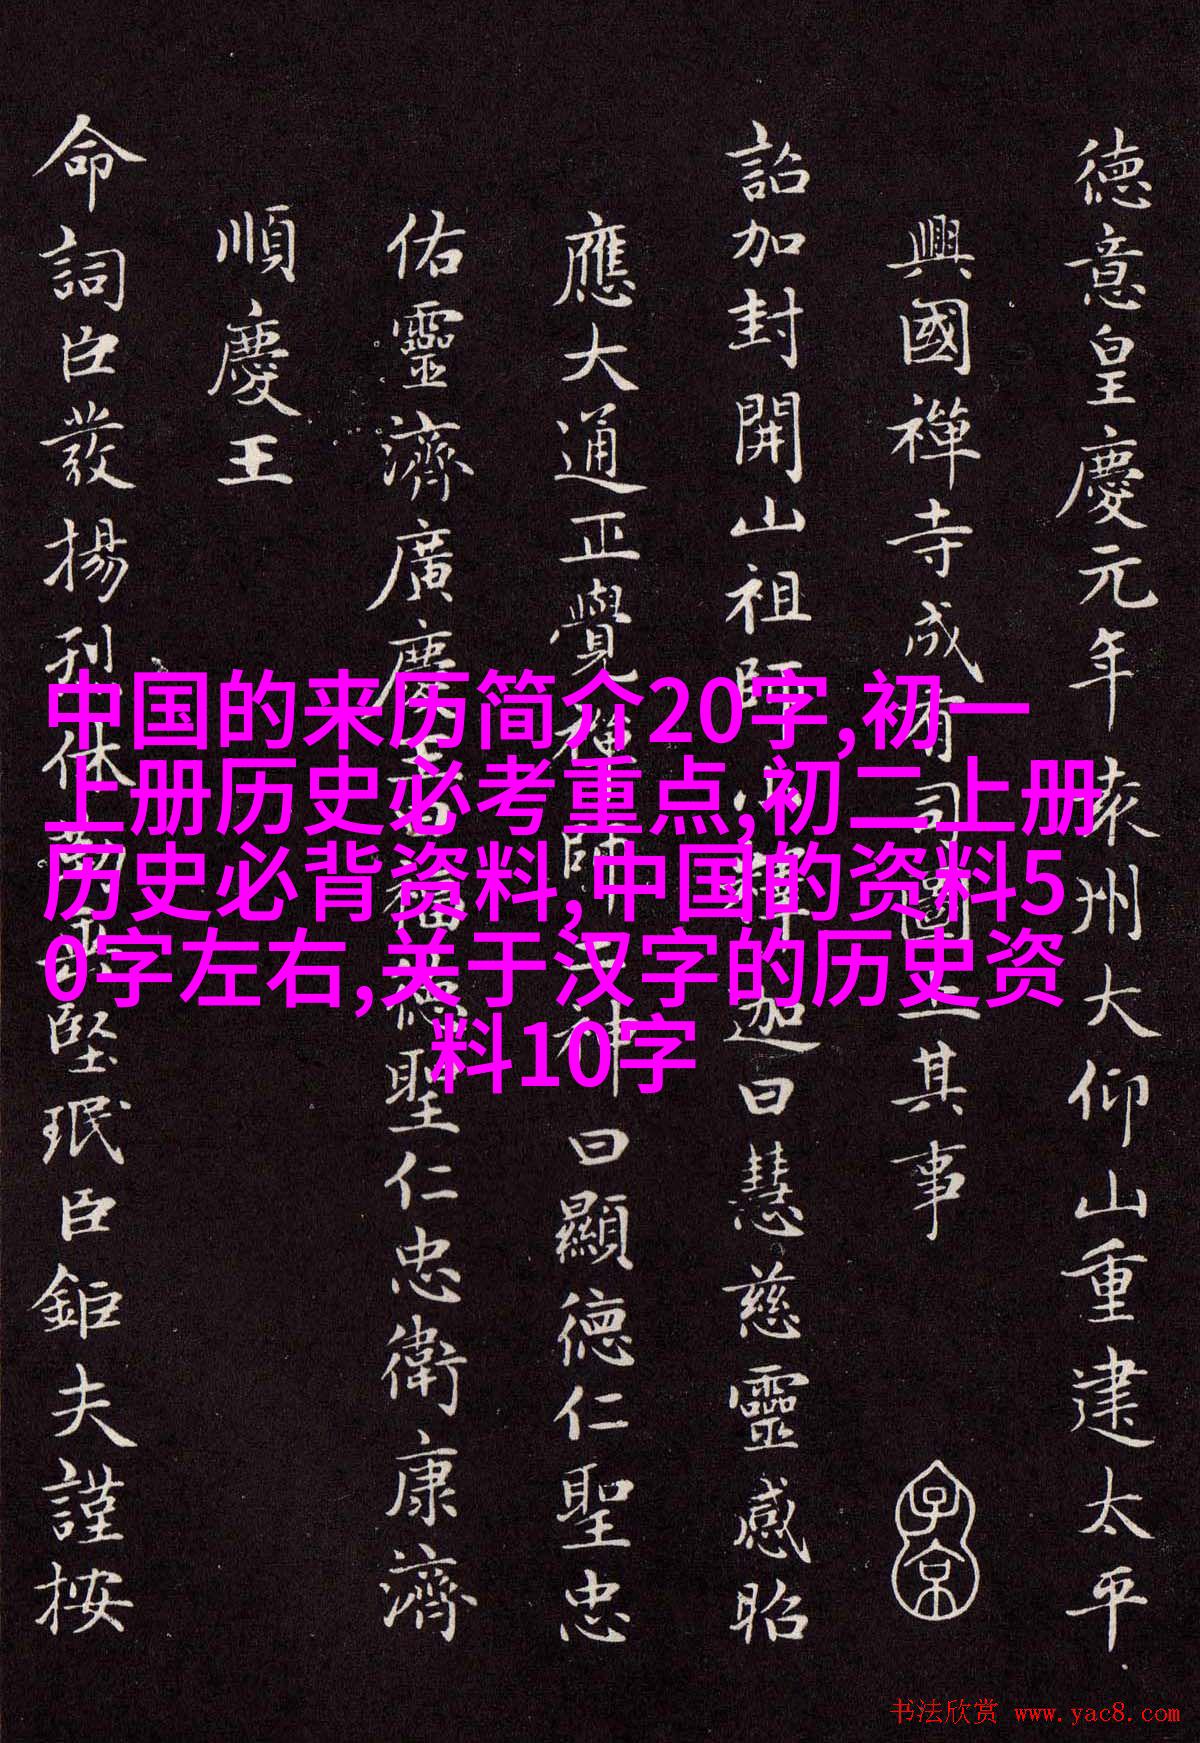 德意皇慶元年袁州大仰山重建太平
興國禪寺成有司圖上其事
子京
詔加封開山祖師小釋迦曰慧慈靈感昭
應大通正覺禪師二神曰顯德仁聖忠
佑靈濟廣慶福德聖仁忠衛康濟
順慶王
命詞臣發揚刊休堅珉臣鉅夫謹按
中国的来历简介20字,初一
上册历史必考重点,初二上册
历史必背资料,中国的资料5
0字左右,关于汉字的历史资
料10字
书法欣赏 www.yac8.com